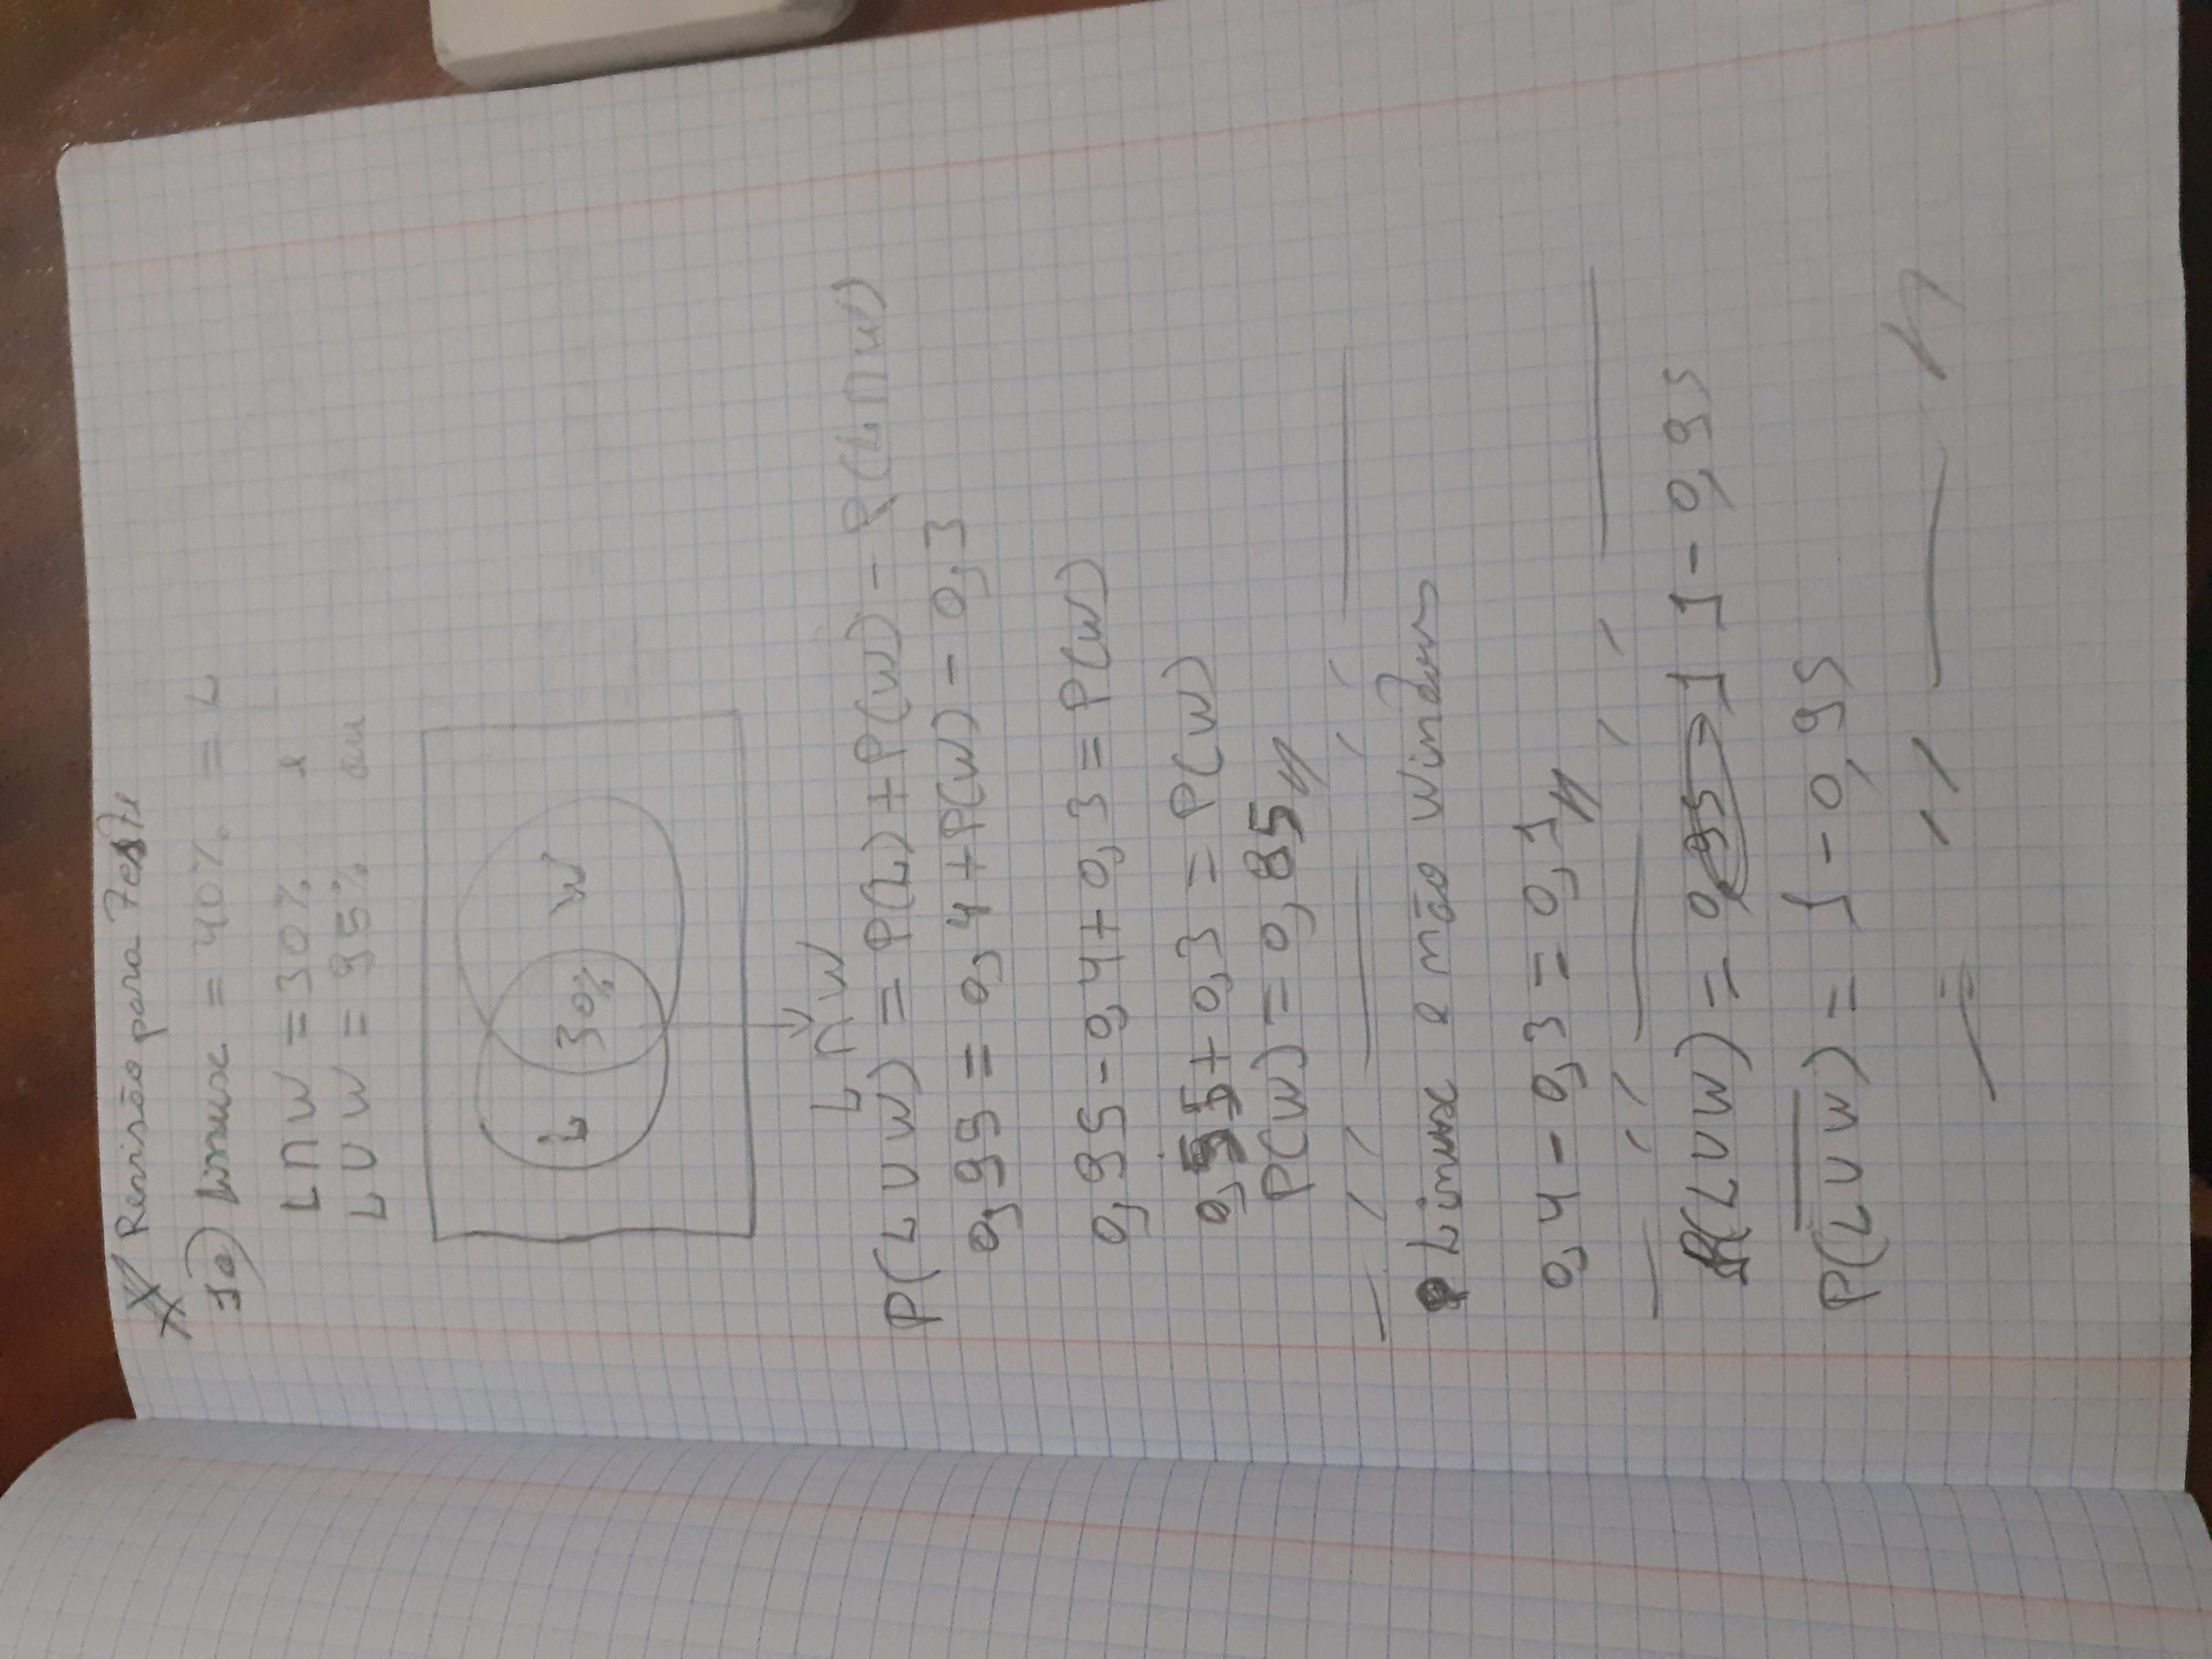 Revisão para Teste
1a) Linux = 40% = L
L∩W = 30% e
L∪W = 95% ou
L 30% W
L∩W
P(L∪W) = P(L)+P(W) - P(L∩W)
0,95 = 0,4+P(W) - 0,3
0,95-0,4+0,3 = P(W)
0,55+0,3 = P(W)
P(W) = 0,85
Linux e não Windows
0,4-0,3 = 0,1
P(L∪W) = 0,95 1 1-0,95
P(\overline{L∪W}) = 1-0,95
=